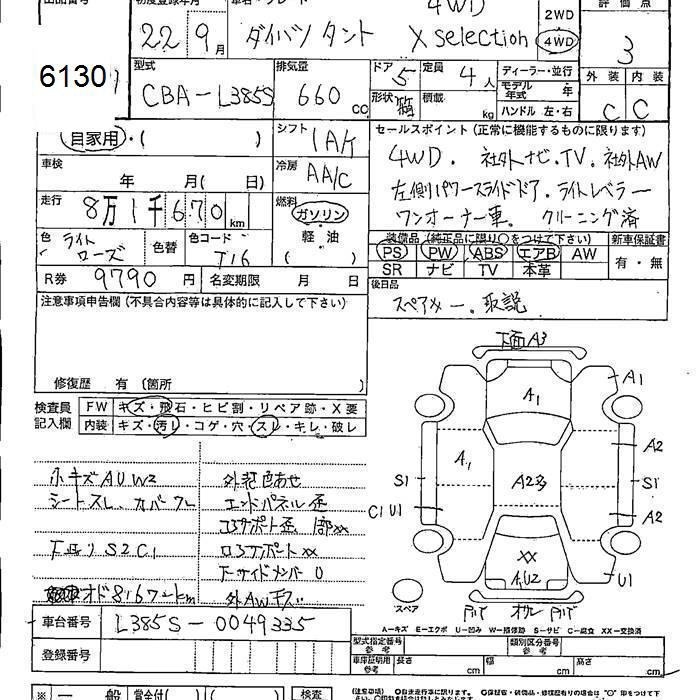 初度登録年月
4WD
評価点
22 9月
ダイハツ タント X selection
2WD
4WD
3
6130
型式
CBA-L385S
排気量
660 cc
ドア 5
定員 4人
形状 箱
積載 kg
ディーラー・並行
モデル年式 年
ハンドル 左・右
外装 内装
C C
自家用・( )
シフト IAK
セールスポイント(正常に機能するものに限ります)
車検 年 月( 日)
冷房 AA/C
4WD. 社外ナビ.TV. 社外AW
左側パワースライドドア. ライトレベラー
ワンオーナー車. クリーニング済
走行 8万1千670km
燃料
ガソリン
軽油
色 ライトローズ
色替
色コード T16
装備品(純正品に限り○をつけて下さい)
新車保証書
PS PW ABS エアB AW
SR ナビ TV 本革
有・無
R券 9790円
名変期限 月 日
後日品
スペアメー. 取説
注意事項申告欄(不具合内容等は具体的に記入して下さい)
修復歴 有(箇所 )
検査員記入欄
FW キズ・飛石・ヒビ割・リペア跡・X要
内装 キズ・汚レ・コゲ・穴・スレ・キレ・破レ
小キズAUW2
シートスレ
外装色あせ
エンドパネル歪
コアサポート歪
下回りS2C1
ロアサポートXX
下サイドメンバーU
オド81672km
外AWキズ
下面A3
A1
A1
A1
A2
S1
A2多
S1
C1U1
A2
XX
U1
スペア
A-キズ E-エクボ U-凹み W-補修跡 S-サビ C-腐食 XX-交換済
車台番号 L385S-0049335
登録番号
型式指定番号 参考
類別区分番号 参考
車庫証明用 参考
長さ cm
幅 cm
高さ cm
※ 一般
賞金付( )
検査